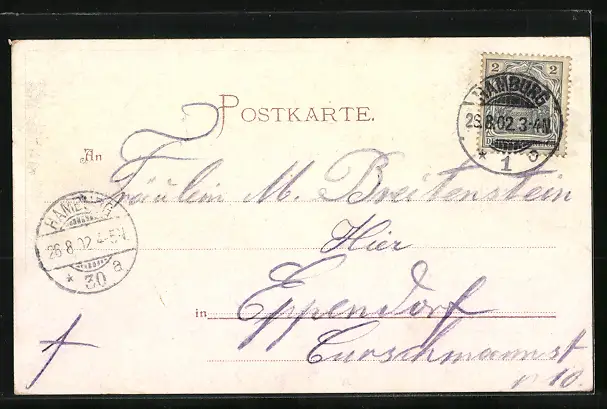 POSTKARTE.
2 2
HAMBURG
26.8.02.3-4N
* 1 a
An Fräulein M. Breitenstein
HAMBURG
26.8.02.4-5N
* 30 a
Hier
in Eppendorf
Curschmannst
n 10.